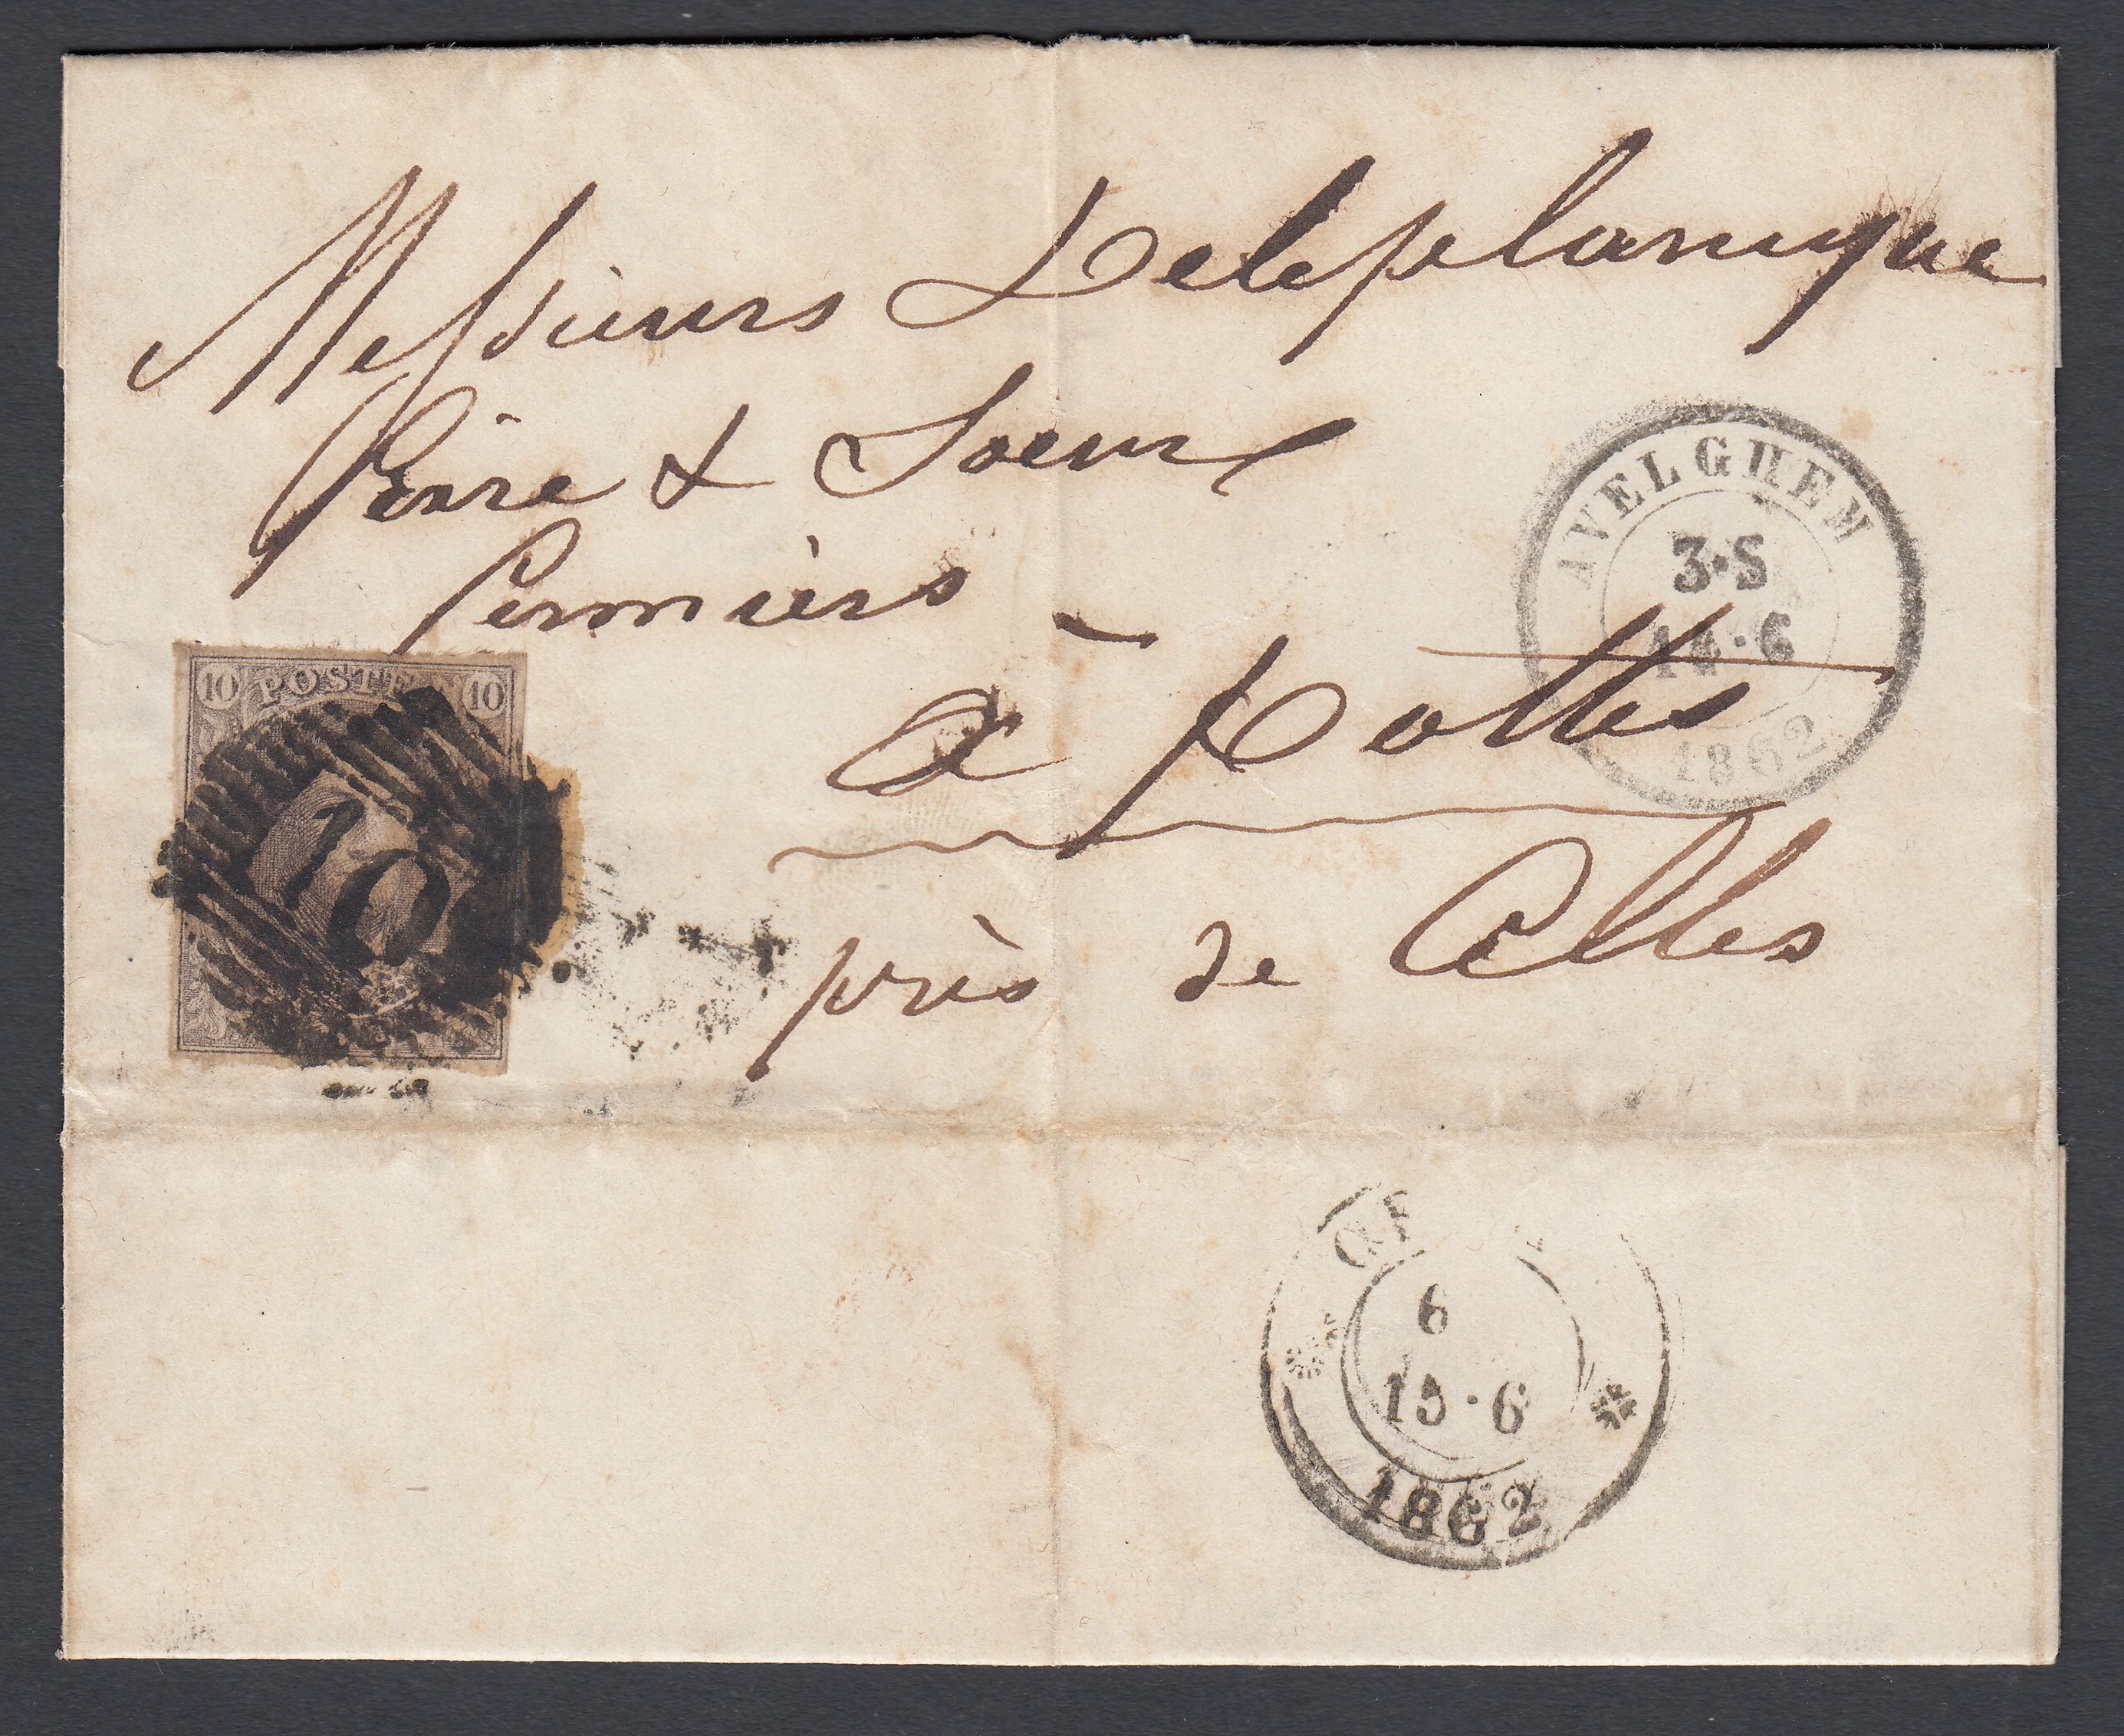 Messieurs Deleplanque
frère & Soeur
fermiers
à Pottes
près de Celles
AVELGHEM
3·S
14·6
1862
10 POSTES 10
10
6
15·6
1862